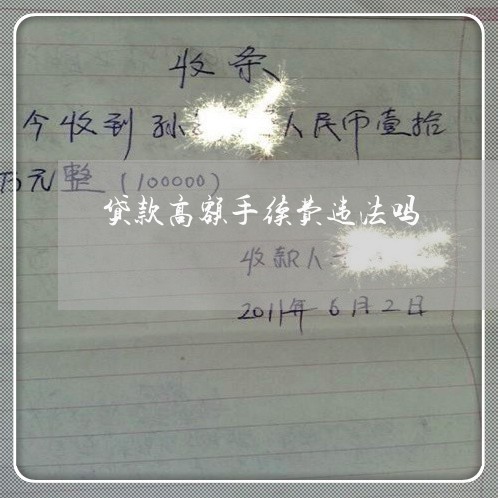 收条
今收到孙 人民币壹拾
万元整(100000)
贷款高额手续费违法吗
收款人
2011年6月2日